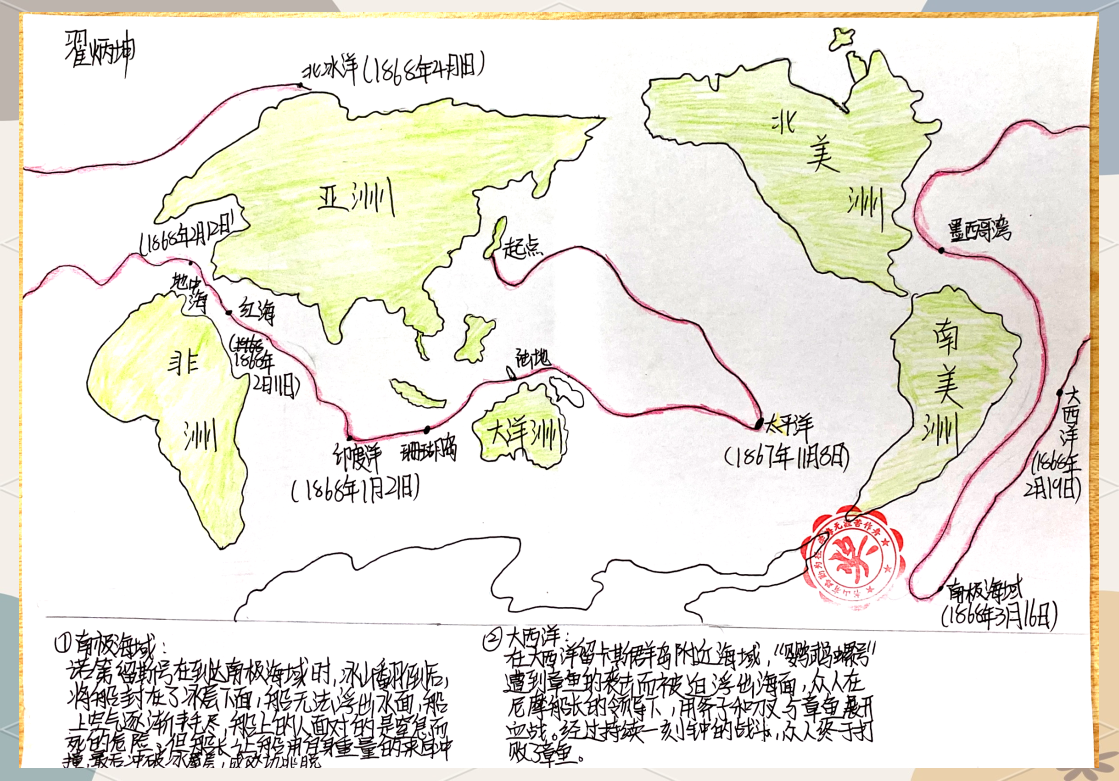 翟炳坤
北冰洋(1868年4月1日)
北
美
洲
亚洲
(1868年2月12日)
起点
墨西哥湾
地中
海
红海
1868年
2月11日)
非
洲
南
美
洲
陆地
大洋洲
太平洋
(1867年11月8日)
印度洋
珊瑚岛
(1868年1月21日)
大
西
洋
(1868年
2月19日)
南极海域
(1868年3月16日)
①南极海域:
诺第留斯号在到达南极海域时,冰山翻倒后,
将船封在了冰层下面,船无法浮出水面,船
上空气逐渐耗尽,船上的人面对的是窒息而
死的危险,但船长让船用自身重量的来回冲
撞,最后冲破冰层,成功逃脱
②大西洋:
在大西洋留卡斯群岛附近海域,“鹦鹉螺号”
遭到章鱼的袭击而被迫浮出海面,众人在
尼摩船长的领导下,用斧子和刀叉与章鱼展开
血战。经过持续一刻钟的战斗,众人终于打
败了章鱼。